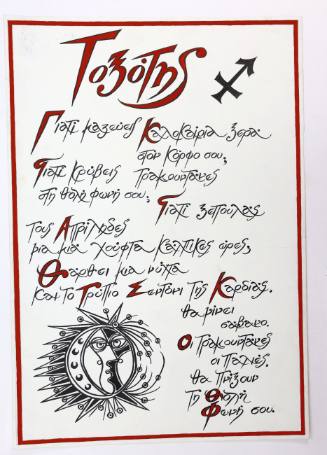 Τοξότης
Γιατί μαζεύεις Καλοκαίρια ξερά
στον Κόρφο σου;
Γιατί Κρύβεις τραμουντάνες
στη θολή φωνή σου;
Γιατί ξεπουλάς
τους Απρίληδες
για μια χούφτα κάλπικες
Θάρθει μια νύχτα
Και το Τρύπιο Σεντόνι της Καρδιάς.
θα μείνει
σάβανο.
Οι Τραμουντάνες
οι Παλιές.
θα Πνίξουν
τη Θολή
Φωνή σου.